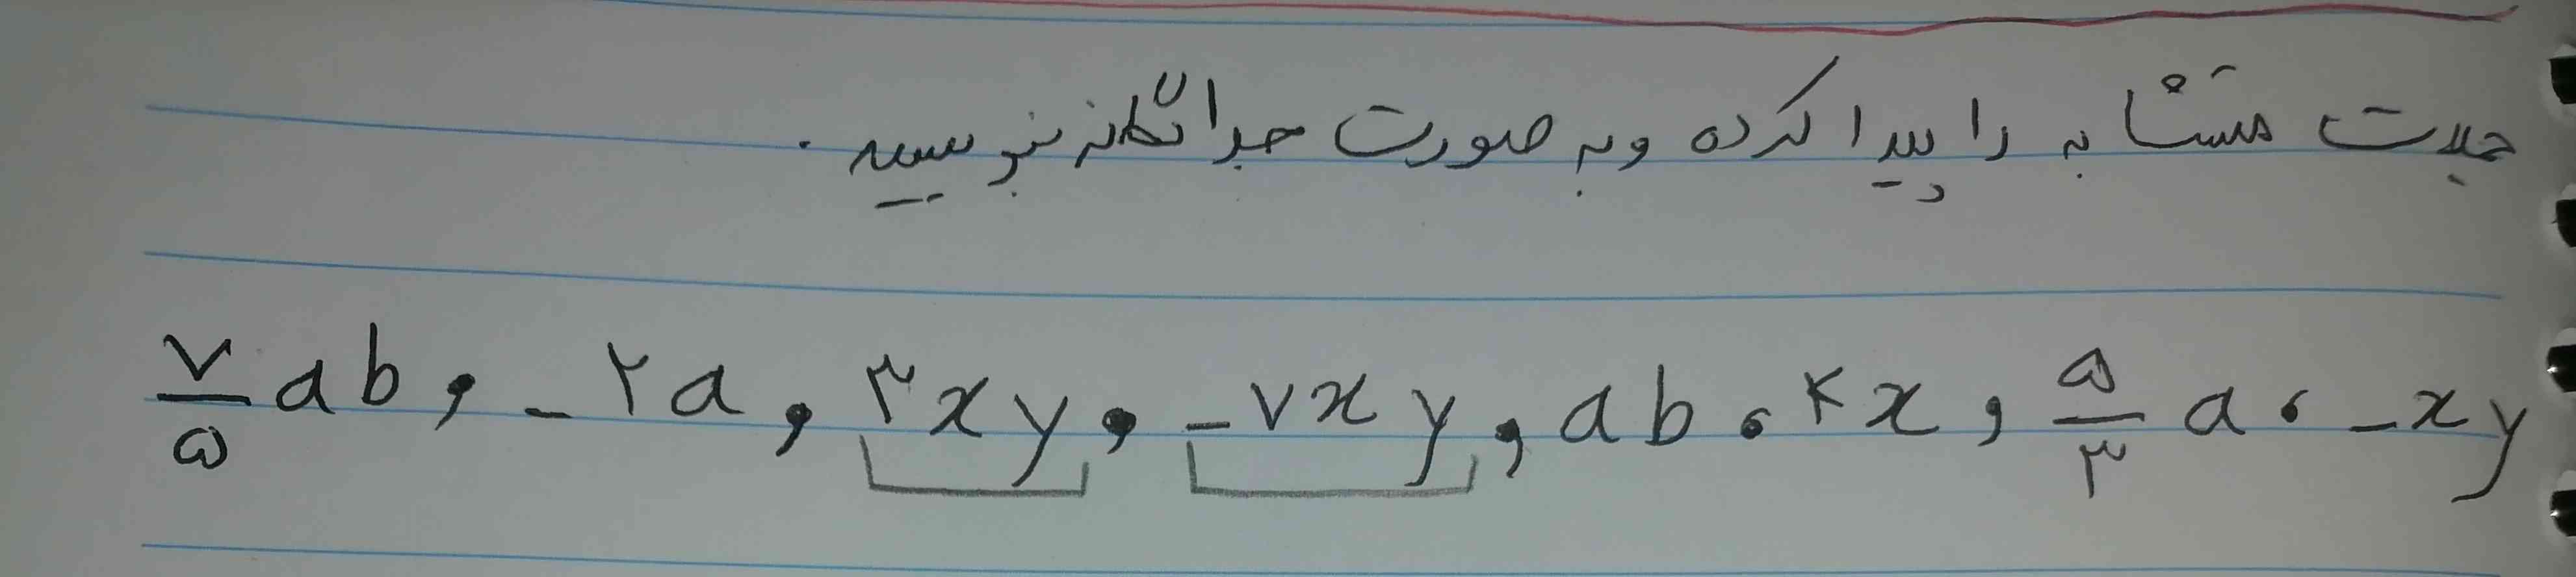 جملات متشابه را پیدا کرده و به صورت جداگانه بنویسید.
۷/۵ ab, -۲a, ۳xy, -۷xy, ab, ۴x, ۵/۳ a, -xy